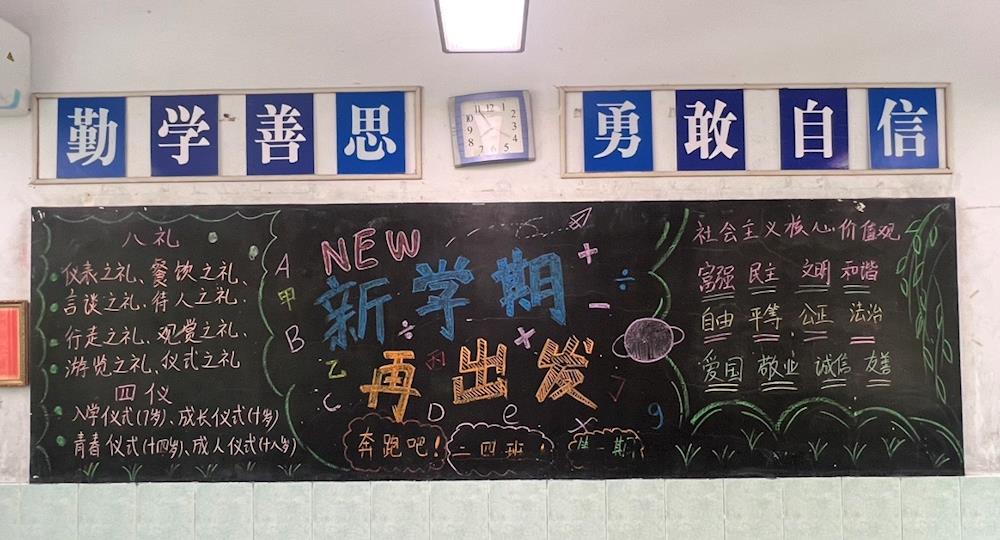 勤学善思
勇敢自信
八礼
仪表之礼、餐饮之礼、
言谈之礼、待人之礼、
行走之礼、观赏之礼、
游览之礼、仪式之礼
四仪
入学仪式(7岁)、成长仪式(十岁)
青春仪式(十四岁)、成人仪式(十八岁)
NEW
新学期
再出发
A
甲
B
乙
丙
C
D
e
x
9
奔跑吧!
二四班!
第一期
社会主义核心价值观
富强 民主 文明 和谐
自由 平等 公正 法治
爱国 敬业 诚信 友善